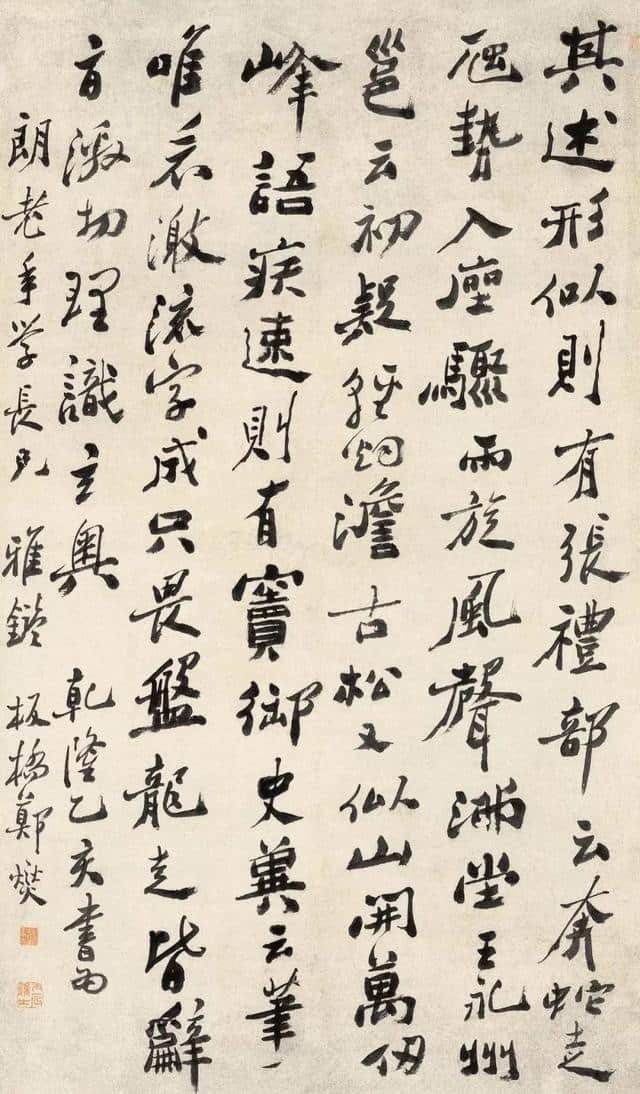 其述形似則有張禮部云奔蛇走
虺勢入座驟雨旋風聲滿堂王永州
邕云初疑輕煙澹古松又似山開萬仞
峰語疾速則有竇御史冀云筆
唯看激流字成只畏盤龍走皆辭
旨激切理識玄奧 乾隆乙亥書為
朗老年学長兄 雅鑒 板橋鄭燮